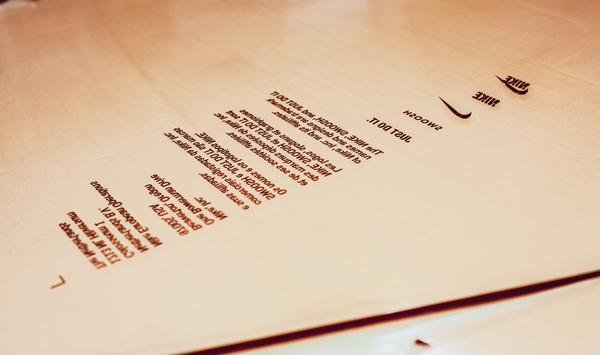 NIKE
NIKE
SWOOSH
JUST DO IT.
The NIKE, SWOOSH, and JUST DO IT
names and designs are trademarks
of Nike, Inc. and its affiliates.
Les logos, slogans et graphismes
NIKE, SWOOSH et JUST DO IT sont
des marques déposées de Nike, Inc.
et de ses sociétés affiliées.
Os nomes e os logotipos NIKE,
SWOOSH e JUST DO IT são marcas
comerciais registradas da Nike, Inc.
e suas afiliadas.
Nike, Inc.
One Bowerman Drive
Beaverton, Oregon
97005, USA
Nike European Operations
Netherlands B.V.
Colosseum 1
1213 NL Hilversum
The Netherlands